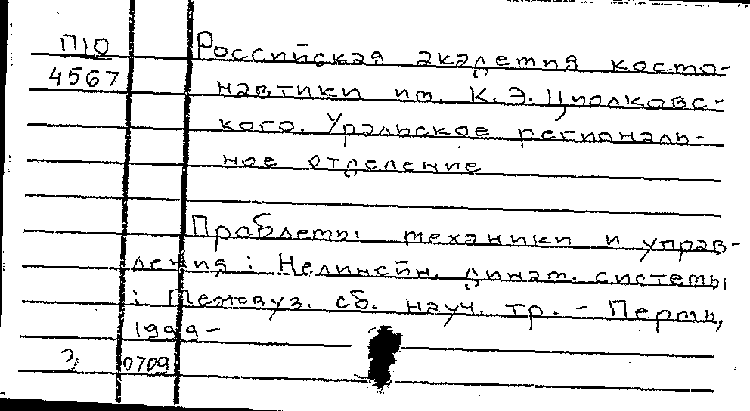 П10 Российская академия космо-
4567 навтики им. К. Э. Циолковс-
кого. Уральское региональ-
ное отделение
Проблемы механики и управ-
ления : Нелинейн. динам. системы
: Межвуз. сб. науч. тр. - Пермь,
1999-
0709